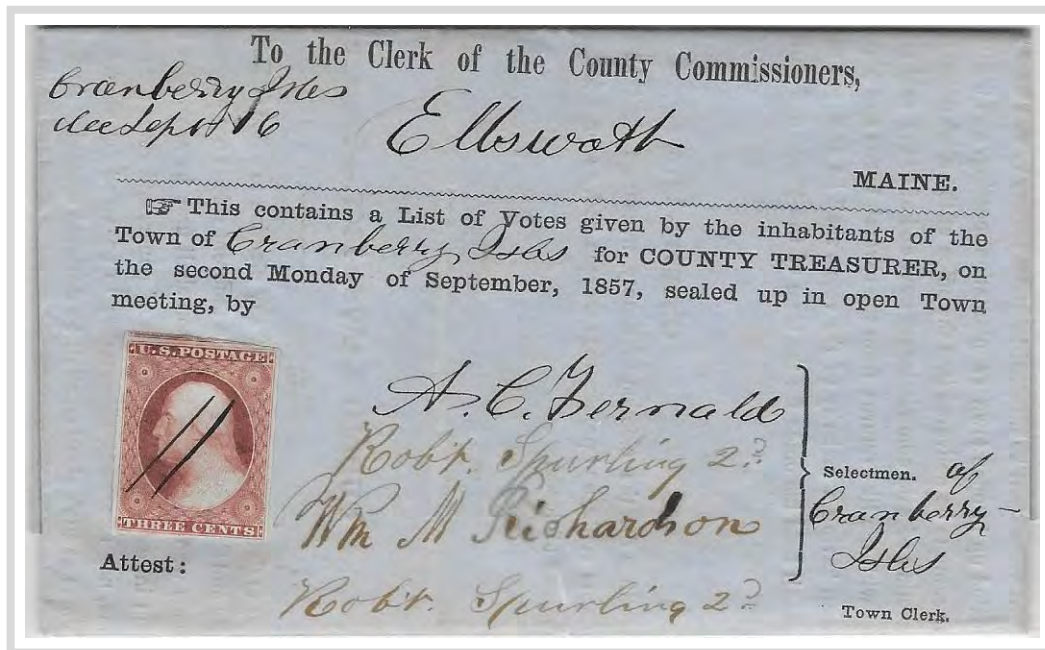 To the Clerk of the County Commissioners,
Cranberry Isles
Sept 16
Ellsworth
MAINE.
☞ This contains a List of Votes given by the inhabitants of the
Town of Cranberry Isles for COUNTY TREASURER, on
the second Monday of September, 1857, sealed up in open Town
meeting, by
U.S. POSTAGE
THREE CENTS
A. C. Fernald
Robt. Spurling 2d
Wm M Richardson
Selectmen. of
Cranberry
Isles
Attest:
Robt. Spurling 2d
Town Clerk.